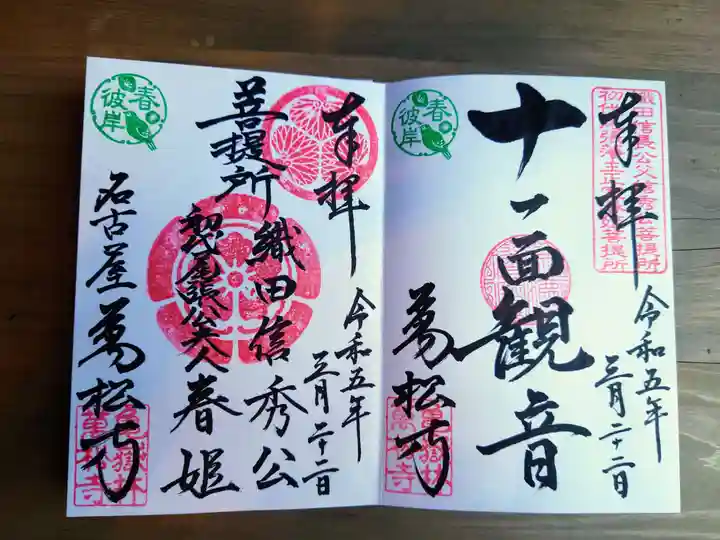 奉拝
織田信長公父信秀公菩提所
令和五年
三月二十二日
十一面観音
萬松寺
亀嶽林
萬松寺
春
彼岸
奉拝
令和五年
三月二十二日
菩提所
織田信秀公
初代尾張公夫人
春姫
名古屋
萬松寺
亀嶽林
萬松寺
春
彼岸